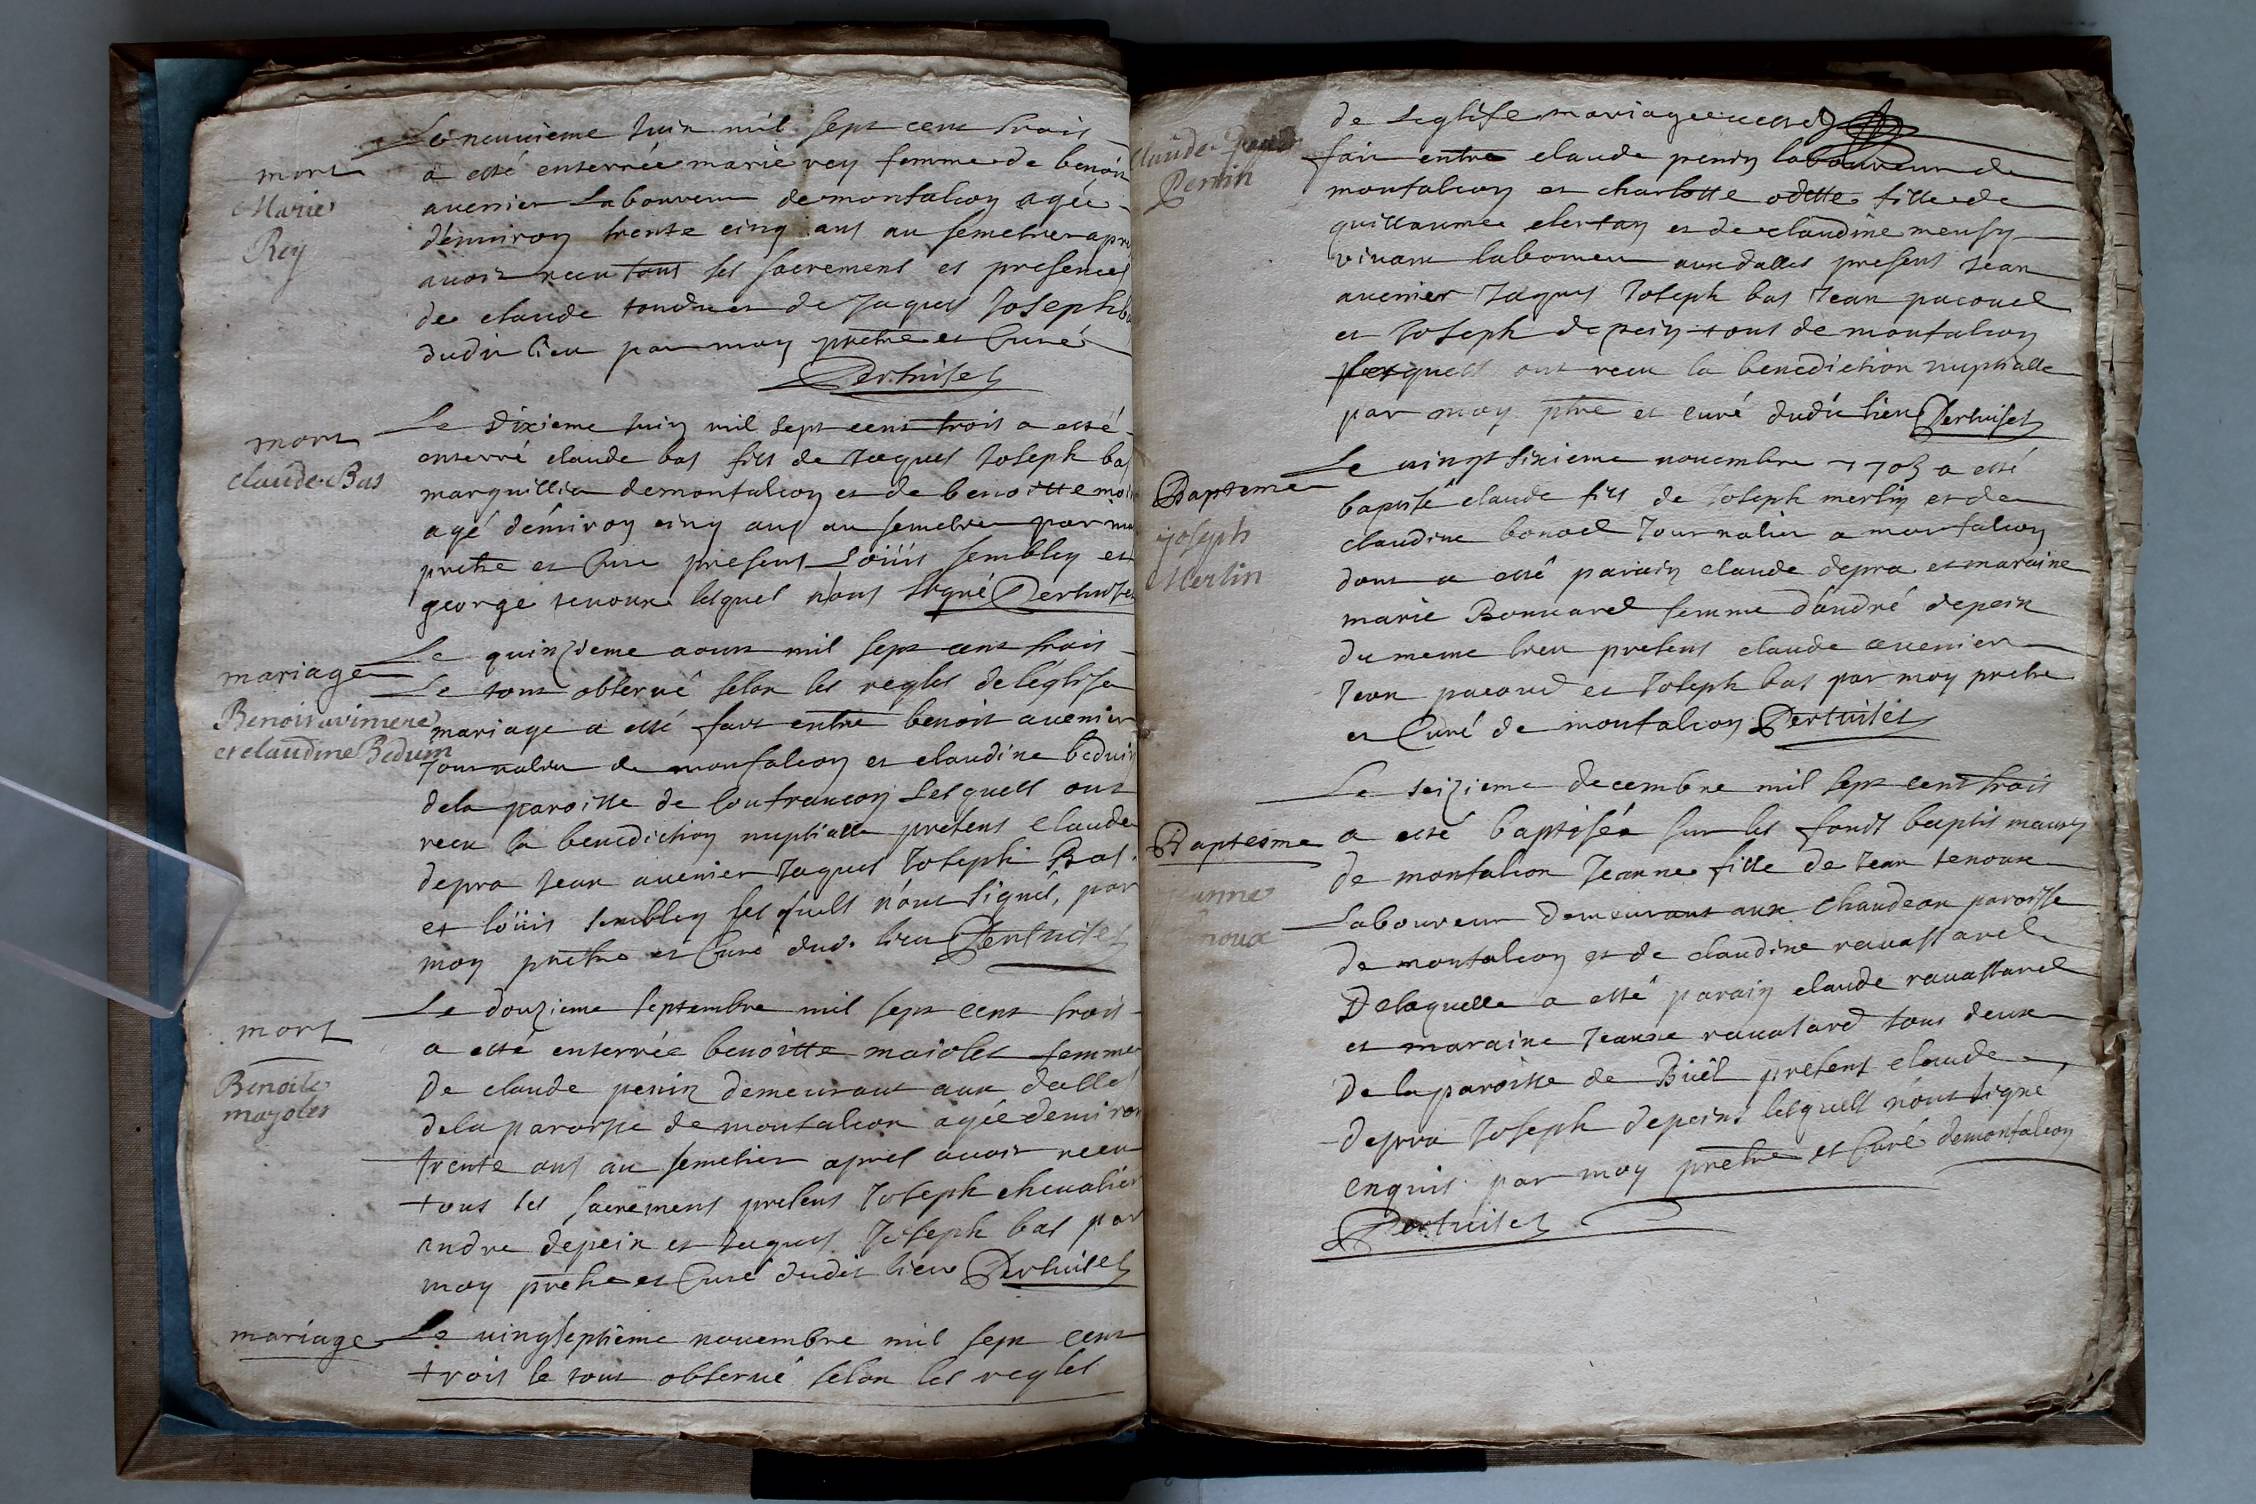 mort
Marie
Rey
Le neuvieme Juin mil sept cent trois
a esté enterrée marie rey femme de benoit
auenier Laboureur de montalcon agée
d'enuiron trente cinq ans au semetier apres
auoir receu tous ses sacrements et presences
de claude tondu et de Jaques Joseph bas
dudit lieu par moy prêtre et Curé
Pertuiset
mort
claude Bas
Le dixieme Juin mil sept cent trois a esté
enterré claude bas fils de Jaques Joseph bas
marguillier de montalcon et de benoitte
agé d'enuiron cinq ans au semetier par moy
pretre et Cure present Loüis sembley et
george tenoux lesquel n'ont signé Pertuiset
mariage
Benoist avinene
et claudine Beduin
Le quinzieme aoust mil sept cent trois
Le tout obserué selon les regles de léglise
mariage a esté fait entre benoit auenier
Journalier de montalcon et claudine beduin
dela paroisse de Confrançon Lesquels ont
receu la benediction nuptialle presens Claude
depra Jean auenier Jaques Joseph Bas
et loüis sembley lesquels n'ont signés, par
moy prêtre et Curé dud. lieu Pertuiset
mort
Benoite
mayoler
Le douzieme septembre mil sept cent trois
a esté enterrée benoitte maioler femme
De claude perrin demeurant aux dalles
dela paroisse de montalcon agée denuiron
trente ans au semetier apres auoir receu
tous ses sacrements presens Joseph cheualier
andre depein et Jaques Joseph bas par
moy prêtre et Curé dudit lieu Pertuiset
mariage
Le uingtseptieme nouembre mil sept cent
trois le tout obserué selon les regles
Claude
Perrin
de Leglise mariage a esté
fait entre claude perrin laboureur de
montalcon et charlotte odette fille de
guillaume clertan et de claudine meusy
viuant laboureur aux dalles presens Jean
auenier Jaques Joseph bas Jean pacoud
et Joseph depein tous de montalcon
lesquels ont receu la benediction nuptialle
par moy ptre et curé dudit lieu Pertuiset
Bapteme
joseph
Merlin
Le uingt sixieme nouembre 1703 a esté
baptisé claude fils de Joseph merlin et de
claudine bonard Journalier a montalcon
dont a esté parain claude depra et maraine
marie Bonnard femme d'andré depein
du meme lieu presens claude auenier
Jean pacoud et Joseph bas par moy pretre
et Curé de montalcon Pertuiset
Baptesme
Le seizieme decembre mil sept cent trois
a esté baptisée sur les fonds baptismaux
de montalcon Jeanne fille de Jean tenoux
Laboureur demeurant aux Chaudeau paroisse
de montalcon et de claudine rauassard
De laquelle a esté parain claude rauassard
et maraine Jeanne rauatard tous deux
De la paroisse de Biêl presens claude
depra Joseph depeins lesquels n'ont signé
enquis par moy prêtre et Curé de montalcon
Pertuiset